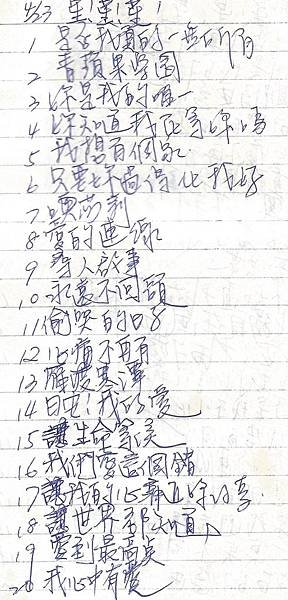 4/23
1 是否我真的一無所有
2 青蘋果樂園
3 你是我的唯一
4 你知道我在等你嗎
5 我想有個家
6 只要你過得比我好
7
8 愛的連線
9 尋人啟事
10 永遠不回頭
11 偷哭的日子
12 心痛不再有
13 雁渡寒潭
14 日安!我的愛
15 讓生命等候
16 我們愛這個錯
17 讓我的心靠近你的
18 讓世界都知道
19 愛到最高点
20 我心中有愛